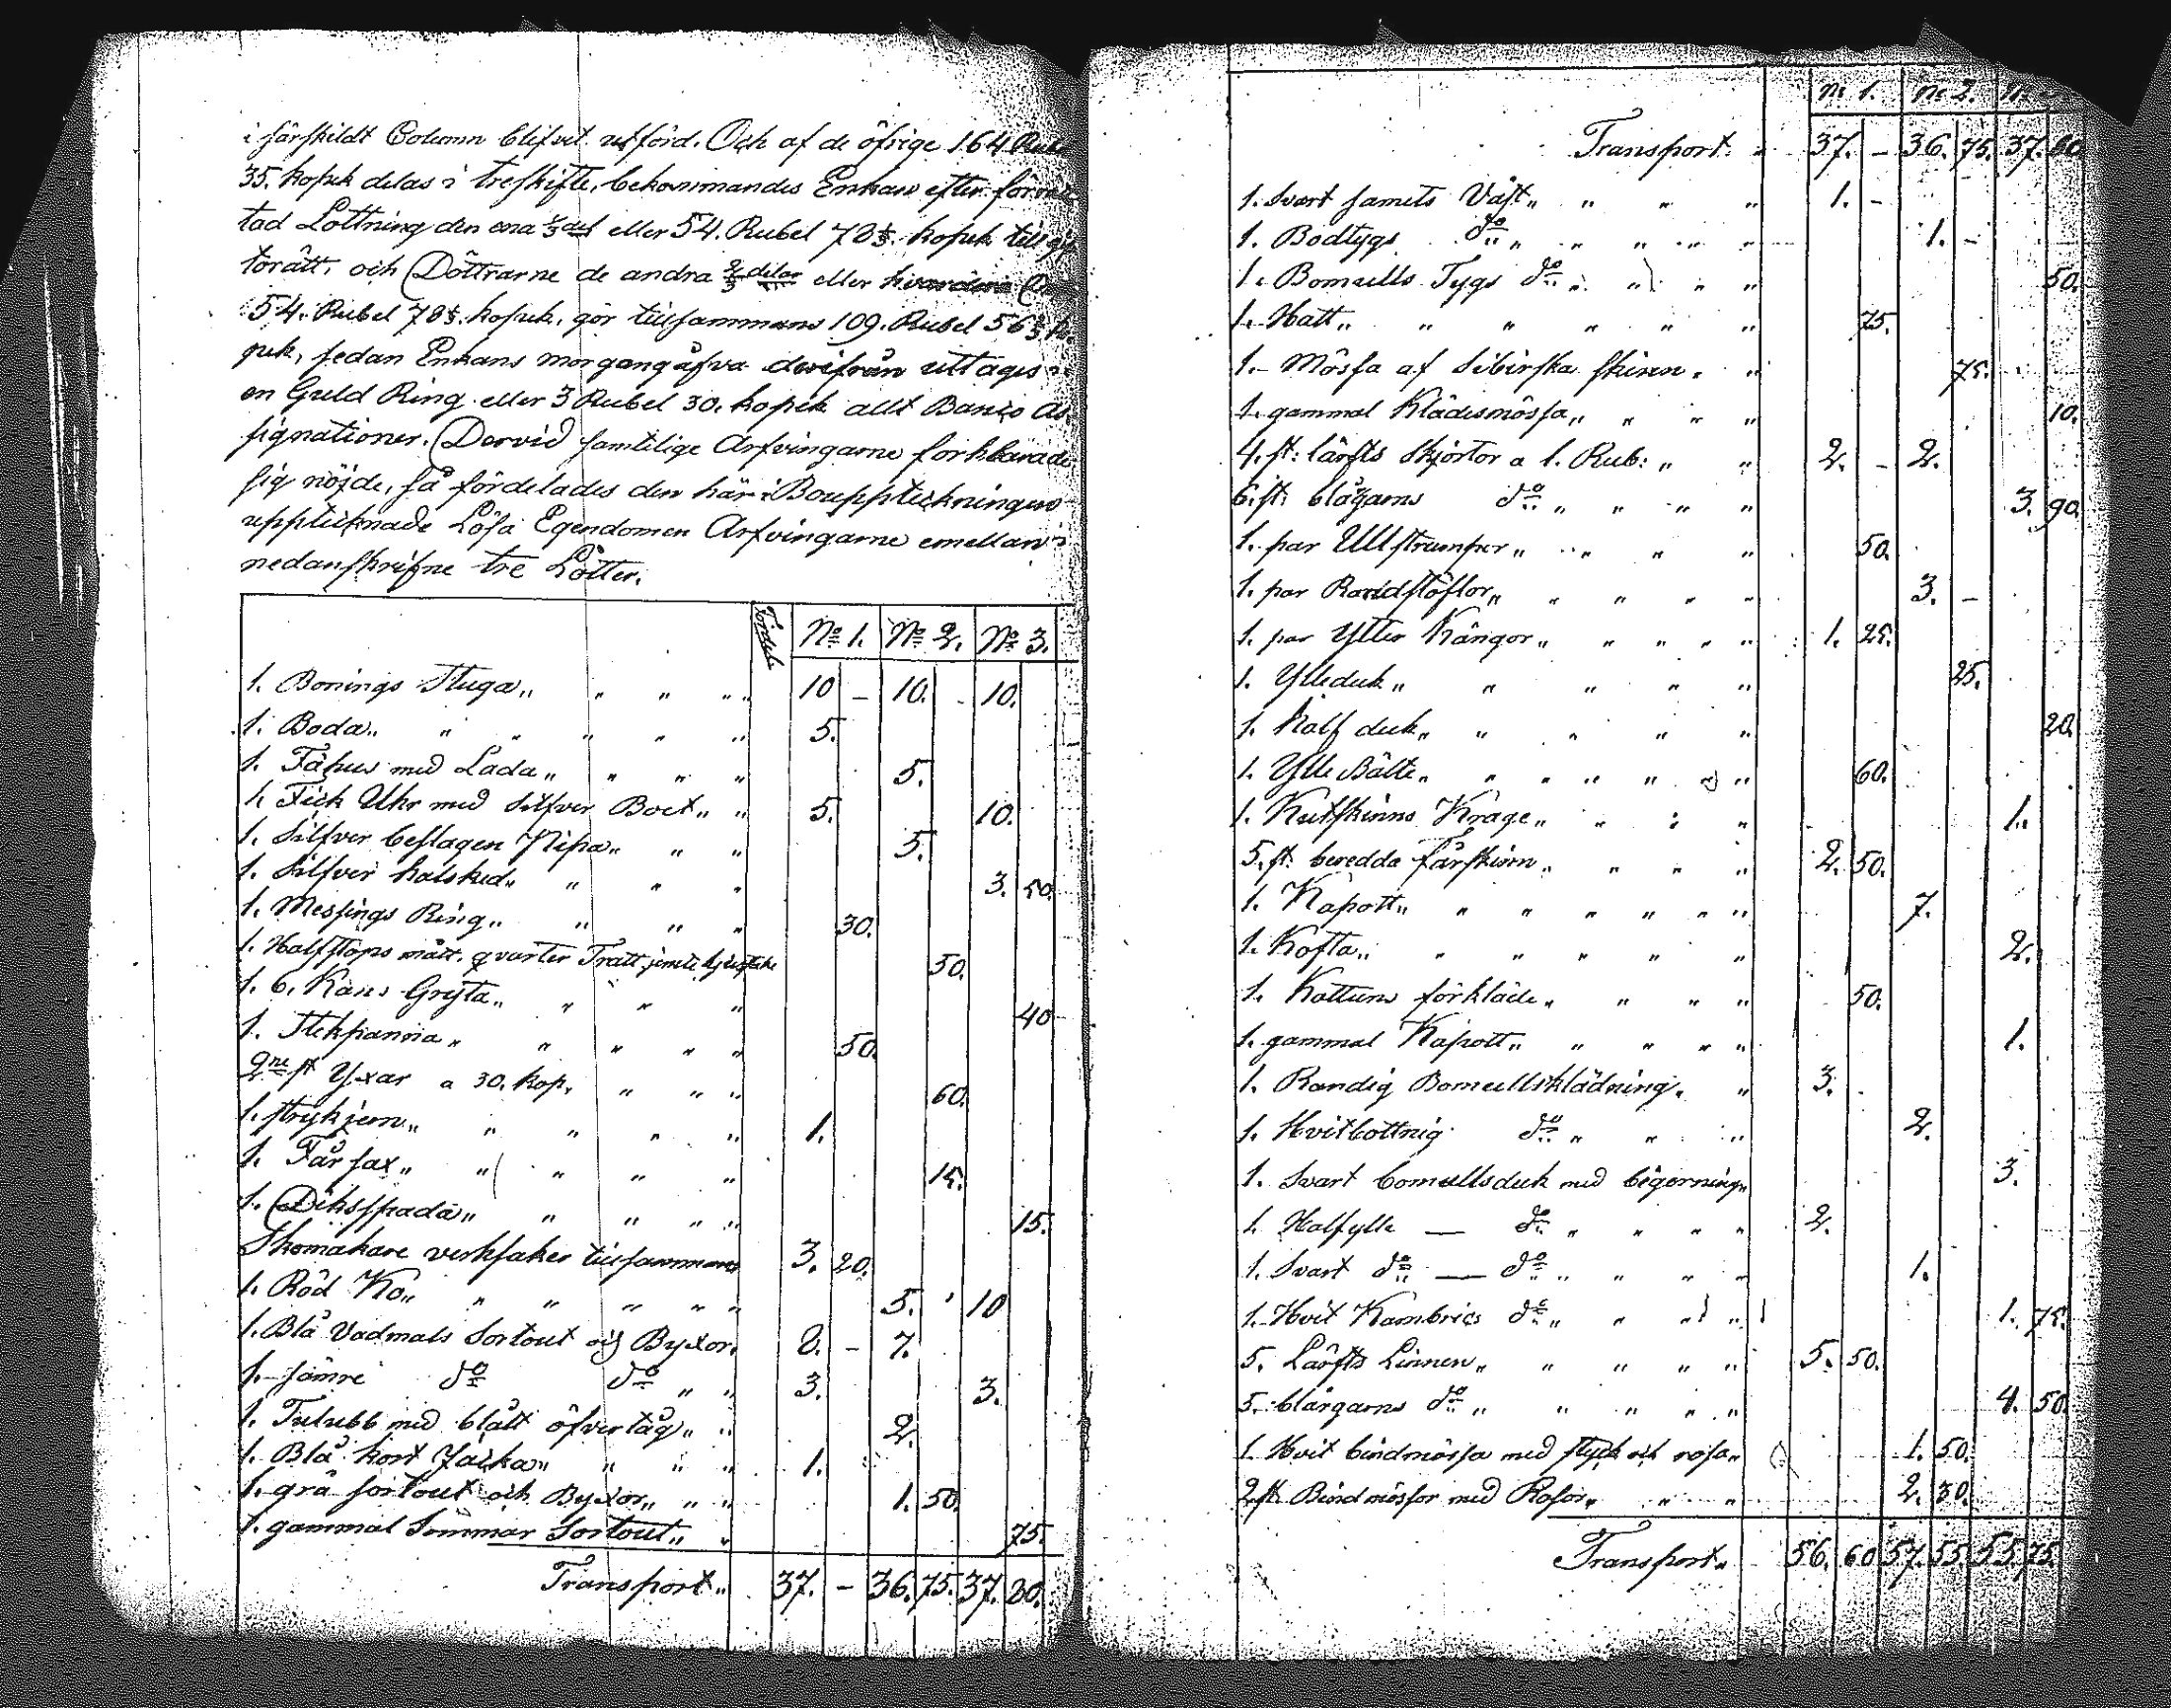 i särskildt Column blifvit utförd. Och af de öfrige 164 Rub
35. kopek delas i treskifte, bekommandes Enkan efter förrät-
tad Lottning den ena 1/3 del eller 54. Rubel 78 1/3. kopek till gif
torätt, och Döttrarne de andra 2/3 delar eller hvardera
54. Rubel 78 1/3. kopek, gör tillsammans 109. Rubel 56 2/3 ko-
pek, sedan Enkans morgongåfva derifrån uttages
en Guld Ring eller 3 Rubel 30. kopek allt Banco As-
signationer. Dervid samtelige Arfvingarne förklarade
sig nöjde, så fördelades den här i Bouppteckningen
upptecknade Lösa Egendomen Arfvingarne emellan i
nedanskrifne tre Lotter.
Fördel. No 1. No 2. No 3.
1. Bonings Stuga „ „ „ „ 10 – 10. – 10.
1. Boda „ „ „ „ „ 5.
1. Fähus med Lada „ „ „ „ 5.
1. Fick Uhr med Silfver Boet „ „ 5. 10.
1. Silfver beslagen Pipa „ „ „ 5.
1. Silfver halsked „ „ „ „ 3. 50.
1. Messings Ring „ „ „ „ 30.
1. Halfstops mått, qvarter Tratt jemte 50.
1. 6. Kans Gryta „ „ „ „ 40
1. Stekpanna „ „ „ „ „ 50.
2ne st Yxar a 30. kop. „ „ „ 60.
1. strykjern „ „ „ „ „ 1.
1. Fårsax „ „ „ „ „ 15.
1. Dikesspada „ „ „ „ „ 15.
Skomakare verksaker tillsammans 3. 20.
1. Röd Ko „ „ „ „ „ „ 5. 10
1. Blå Vadmals Sortout och Byxor. 8. – 7.
1. sämre do do „ „ 3. 3.
1. Tulubb med blått öfvertåg „ „ 2.
1. Blå kort Jacka „ „ „ „ 1.
1. grå sortout och Byxor „ „ „ 1. 50.
1. gammal Sommar Sortout „ „ 75.
Transport „ 37. – 36. 75. 37. 80.
No 1. No 2.
Transport. „ 37. – 36. 75. 37. 80.
1. Svart samets Väst „ „ „ „ 1. –
1. Bodtygs do „ „ „ „ „ 1. –
1. Bomulls Tygs do „ „ „ „ 50.
1. Hatt „ „ „ „ „ „ 75.
1. Mössa af Sibirska skinn. „ 75.
1. gammal Klädesmössa „ „ „ „ 10.
4. st: lärfts skjortor a 1. Rub: „ „ 2. – 2.
6. st: blågarns do „ „ „ „ 3. 90.
1. par Ullstrumpor „ „ „ „ 50.
1. par Randstöflor „ „ „ „ „ 3. –
1. par Yller Kängor „ „ „ „ „ 1. 25.
1. Ylleduk „ „ „ „ „ 25.
1. Half duk „ „ „ „ „ 20.
1. Ylle Bälte „ „ „ „ „ „ 60.
1. Kutskinns Krage „ „ „ „ 1.
5. st: beredda fårskinn „ „ „ „ 2. 50.
1. Kapott „ „ „ „ „ „ „ 7.
1. Kofta „ „ „ „ „ „ 2.
1. Kattuns förkläde „ „ „ „ 50.
1. gammal Kapott „ „ „ „ „ 1.
1. Randig Bomullsklädning. „ 3.
1. Hvitbottnig do „ „ „ 2.
1. Svart bomullsduk med 3.
1. Halfylle — do „ „ „ „ 2.
1. Svart do — do „ „ „ „ 1.
1. Hvit Kambrics do „ „ „ „ 1. 75.
5. Lärfts Linnen „ „ „ „ „ 5. 50.
5. blårgarns do „ „ „ „ „ 4. 50.
1. Hvit bindmössa med styck och rosa „ 1. 50.
2 st. Bindmössor med Rosor „ „ „ 2. 30.
Transport „ 56. 60 57. 55. 55. 75.